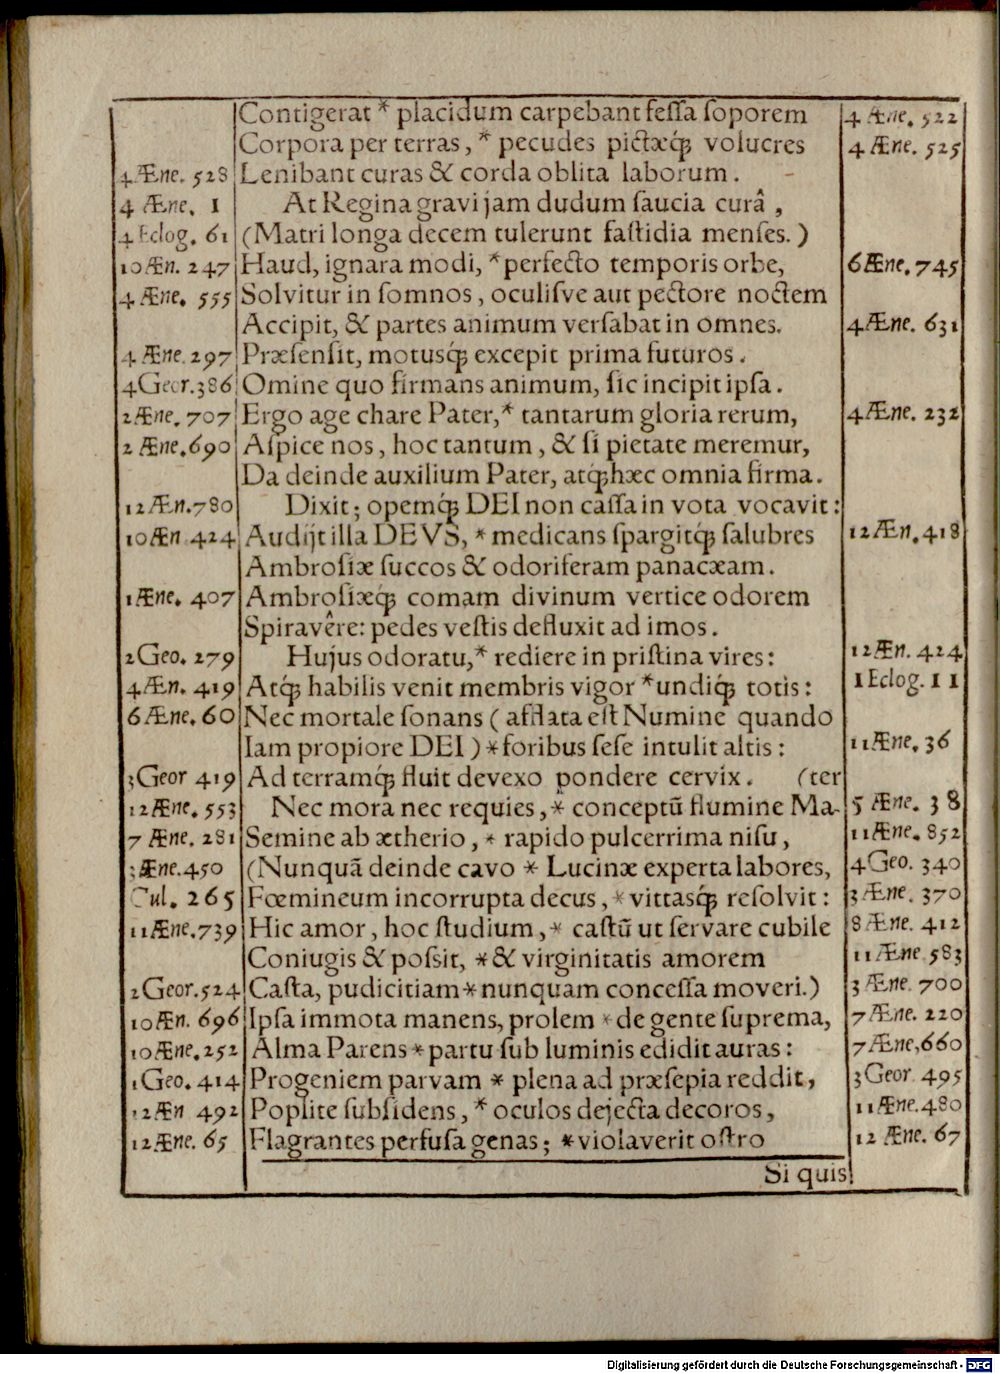 Contigerat * placidum carpebant fessa soporem 4 Æne. 522
Corpora per terras, * pecudes pictæq́; volucres 4 Æne. 525
4 Æne. 528 Lenibant curas & corda oblita laborum.
4 Æne. 1 At Regina gravi jam dudum saucia curâ,
4 Eclog. 61 (Matri longa decem tulerunt fastidia menses.)
10 Æn. 247 Haud, ignara modi, * perfecto temporis orbe, 6 Æne. 745
4 Æne. 555 Solvitur in somnos, oculisve aut pectore noctem
Accipit, & partes animum versabat in omnes. 4 Æne. 631
4 Æne. 297 Præsensit, motusq́; excepit prima futuros.
4 Geor. 386 Omine quo firmans animum, sic incipit ipsa.
2 Æne. 707 Ergo age chare Pater, * tantarum gloria rerum, 4 Æne. 232
2 Æne. 690 Aspice nos, hoc tantum, & si pietate meremur,
Da deinde auxilium Pater, atq́; hæc omnia firma.
12 Æn. 780 Dixit; opemq́; DEI non cassa in vota vocavit:
10 Æn 424 Audijt illa DEVS, * medicans spargitq́; salubres 12 Æn. 418
Ambrosiæ succos & odoriferam panacæam.
1 Æne. 407 Ambrosiæq́; comam divinum vertice odorem
Spiravêre: pedes vestis defluxit ad imos.
2 Geo. 279 Hujus odoratu, * rediere in pristina vires: 12 Æn. 424
4 Æn. 419 Atq́; habilis venit membris vigor * undiq́; totis: 1 Eclog. 11
6 Æne. 60 Nec mortale sonans (afflata est Numine quando
Iam propiore DEI) * foribus sese intulit altis: 11 Æne. 36
3 Geor 419 Ad terramq́; fluit devexo pondere cervix. (ter
12 Æne. 553 Nec mora nec requies, * conceptũ flumine Ma- 5 Æne. 38
7 Æne. 281 Semine ab ætherio, * rapido pulcerrima nisu, 11 Æne. 852
3 Æne. 450 (Nunquã deinde cavo * Lucinæ experta labores, 4 Geo. 340
Cul. 265 Fœmineum incorrupta decus, * vittasq́; resolvit: 3 Æne. 370
11 Æne. 739 Hic amor, hoc studium, * castũ ut servare cubile 8 Æne. 412
Coniugis & possit, * & virginitatis amorem 11 Æne 583
2 Geor. 524 Casta, pudicitiam * nunquam concessa moveri.) 3 Æne. 700
10 Æn. 696 Ipsa immota manens, prolem * de gente suprema, 7 Æne. 220
10 Æne. 252 Alma Parens * partu sub luminis edidit auras: 7 Æne, 660
1 Geo. 414 Progeniem parvam * plena ad præsepia reddit, 3 Geor. 495
12 Æn 492 Poplite subsidens, * oculos dejecta decoros, 11 Æne. 480
12 Æne. 65 Flagrantes perfusa genas; * violaverit ostro 12 Æne. 67
Si quis
Digitalisierung gefördert durch die Deutsche Forschungsgemeinschaft - DFG